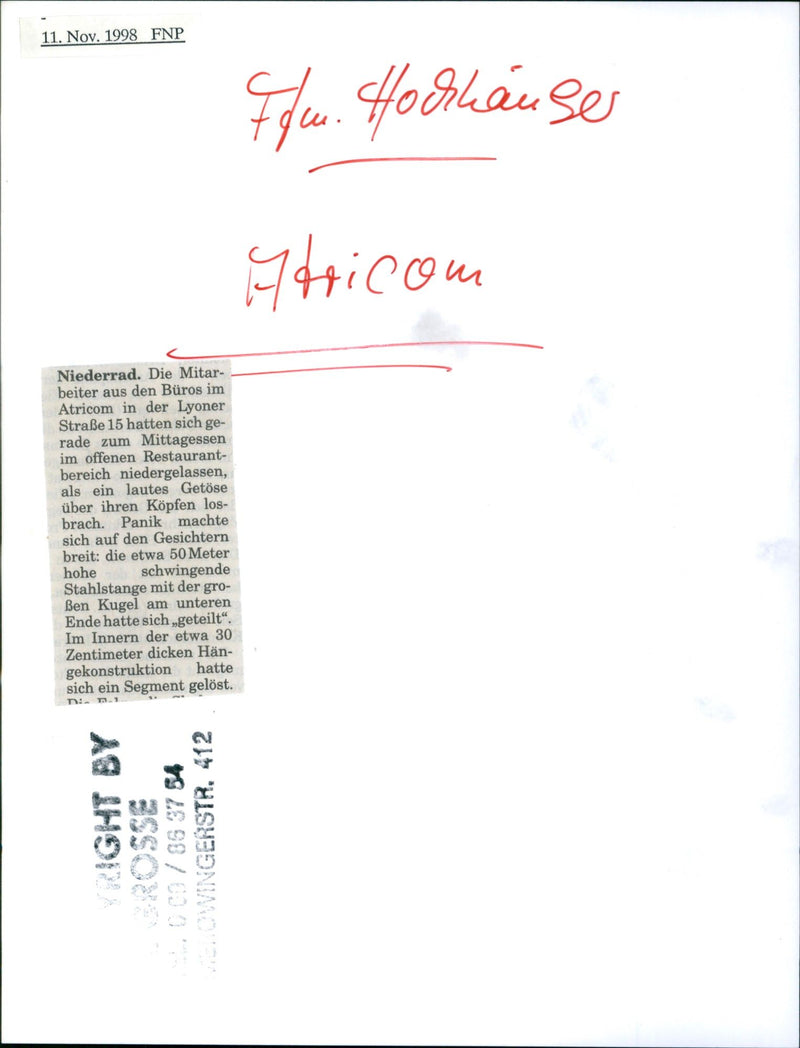 11. Nov. 1998 FNP
Ffm. Hochhäuser
Atricom
Niederrad. Die Mitar-
beiter aus den Büros im
Atricom in der Lyoner
Straße 15 hatten sich ge-
rade zum Mittagessen
im offenen Restaurant-
bereich niedergelassen,
als ein lautes Getöse
über ihren Köpfen los-
brach. Panik machte
sich auf den Gesichtern
breit: die etwa 50 Meter
hohe schwingende
Stahlstange mit der gro-
ßen Kugel am unteren
Ende hatte sich „geteilt“.
Im Innern der etwa 30
Zentimeter dicken Hän-
gekonstruktion hatte
sich ein Segment gelöst.
YRIGHT BY
GROSSE
069 / 86 37 64
OWINGERSTR. 412